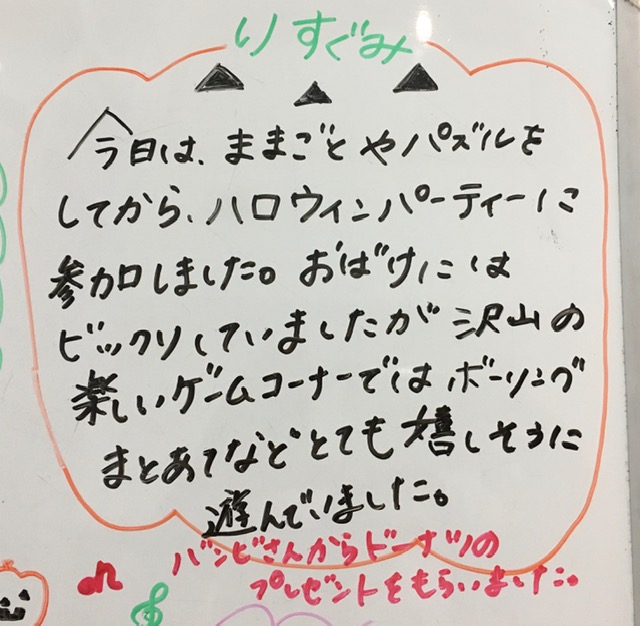 りすぐみ
今日は、ままごとやパズルを
してから、ハロウィンパーティーに
参加しました。おばけには
ビックリしていましたが沢山の
楽しいゲームコーナーではボーリング
まとあてなどとても嬉しそうに
遊んでいました。
バンビさんからドーナツの
プレゼントをもらいました。